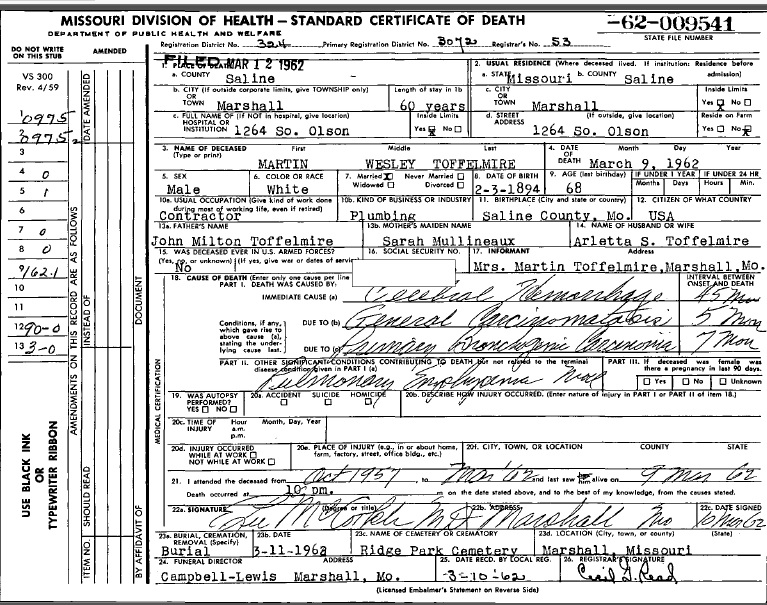 MISSOURI DIVISION OF HEALTH — STANDARD CERTIFICATE OF DEATH
-62-009541
DEPARTMENT OF PUBLIC HEALTH AND WELFARE
STATE FILE NUMBER
DO NOT WRITE ON THIS STUB
AMENDED
Registration District No. 324 Primary Registration District No. 3072 Registrar's No. 53
FILED MAR 12 1962
VS 300
Rev. 4/59
1. PLACE OF DEATH
a. COUNTY Saline
2. USUAL RESIDENCE (Where deceased lived. If institution: Residence before admission)
a. STATE Missouri b. COUNTY Saline
b. CITY (If outside corporate limits, give TOWNSHIP only) OR TOWN Marshall
Length of stay in 1b 60 years
c. CITY OR TOWN Marshall
Inside Limits Yes No
c. FULL NAME OF (If NOT in hospital, give location) HOSPITAL OR INSTITUTION 1264 So. Olson
Inside Limits Yes No
d. STREET ADDRESS (If outside, give location) 1264 So. Olson
Reside on Farm Yes No
3. NAME OF DECEASED (Type or print) First Middle Last
MARTIN WESLEY TOFFELMIRE
4. DATE OF DEATH Month Day Year
March 9, 1962
5. SEX Male
6. COLOR OR RACE White
7. Married Never Married Widowed Divorced
8. DATE OF BIRTH 2-3-1894
9. AGE (last birthday) 68
IF UNDER 1 YEAR Months Days
IF UNDER 24 HR Hours Min.
10a. USUAL OCCUPATION (Give kind of work done during most of working life, even if retired) Contractor
10b. KIND OF BUSINESS OR INDUSTRY Plumbing
11. BIRTHPLACE (City and state or country) Saline County, Mo.
12. CITIZEN OF WHAT COUNTRY USA
13a. FATHER'S NAME John Milton Toffelmire
13b. MOTHER'S MAIDEN NAME Sarah Mullineaux
14. NAME OF HUSBAND OR WIFE Arletta S. Toffelmire
15. WAS DECEASED EVER IN U.S. ARMED FORCES? (Yes, no, or unknown) (If yes, give war or dates of service) No
16. SOCIAL SECURITY NO.
17. INFORMANT Address
Mrs. Martin Toffelmire, Marshall, Mo.
18. CAUSE OF DEATH (Enter only one cause per line
PART I. DEATH WAS CAUSED BY:
INTERVAL BETWEEN ONSET AND DEATH
IMMEDIATE CAUSE (a) Cerebral Hemorrhage
Conditions, if any, which gave rise to above cause (a), stating the underlying cause last.
DUE TO (b) General Carcinomatosis 5 Mon
DUE TO (c) Primary Bronchogenic Carcinoma 7 Mon
PART II. OTHER SIGNIFICANT CONDITIONS CONTRIBUTING TO DEATH but not related to the terminal disease condition given in PART I (a)
Pulmonary Emphysema
PART III. If deceased was female was there a pregnancy in last 90 days.
Yes No Unknown
19. WAS AUTOPSY PERFORMED? YES NO
20a. ACCIDENT SUICIDE HOMICIDE
20b. DESCRIBE HOW INJURY OCCURRED. (Enter nature of injury in PART I or PART II of item 18.)
20c. TIME OF INJURY Hour a.m. p.m. Month, Day, Year
20d. INJURY OCCURRED WHILE AT WORK NOT WHILE AT WORK
20e. PLACE OF INJURY (e.g., in or about home, farm, factory, street, office bldg., etc.)
20f. CITY, TOWN, OR LOCATION COUNTY STATE
21. I attended the deceased from Oct 1957 to Mar '62 and last saw him alive on 9 Mar 62
Death occurred at 10 pm. m on the date stated above, and to the best of my knowledge, from the causes stated.
22a. SIGNATURE (Degree or title)
22b. ADDRESS Marshall Mo
22c. DATE SIGNED
23a. BURIAL, CREMATION, REMOVAL (Specify) Burial
23b. DATE 3-11-1962
23c. NAME OF CEMETERY OR CREMATORY Ridge Park Cemetery
23d. LOCATION (City, town, or county) (State) Marshall, Missouri
24. FUNERAL DIRECTOR ADDRESS
Campbell-Lewis Marshall, Mo.
25. DATE RECD. BY LOCAL REG. 3-10-62
26. REGISTRAR'S SIGNATURE Cecil G. Read
(Licensed Embalmer's Statement on Reverse Side)
0975
0975
3
4 0
5 1
6
7 0
8 0
9162.1
10
11
1290-0
13 3-0
USE BLACK INK OR TYPEWRITER RIBBON
AMENDMENTS ON THIS RECORD ARE AS FOLLOWS
DATE AMENDED
INSTEAD OF
SHOULD READ
ITEM NO.
DOCUMENT
BY AFFIDAVIT OF
MEDICAL CERTIFICATION